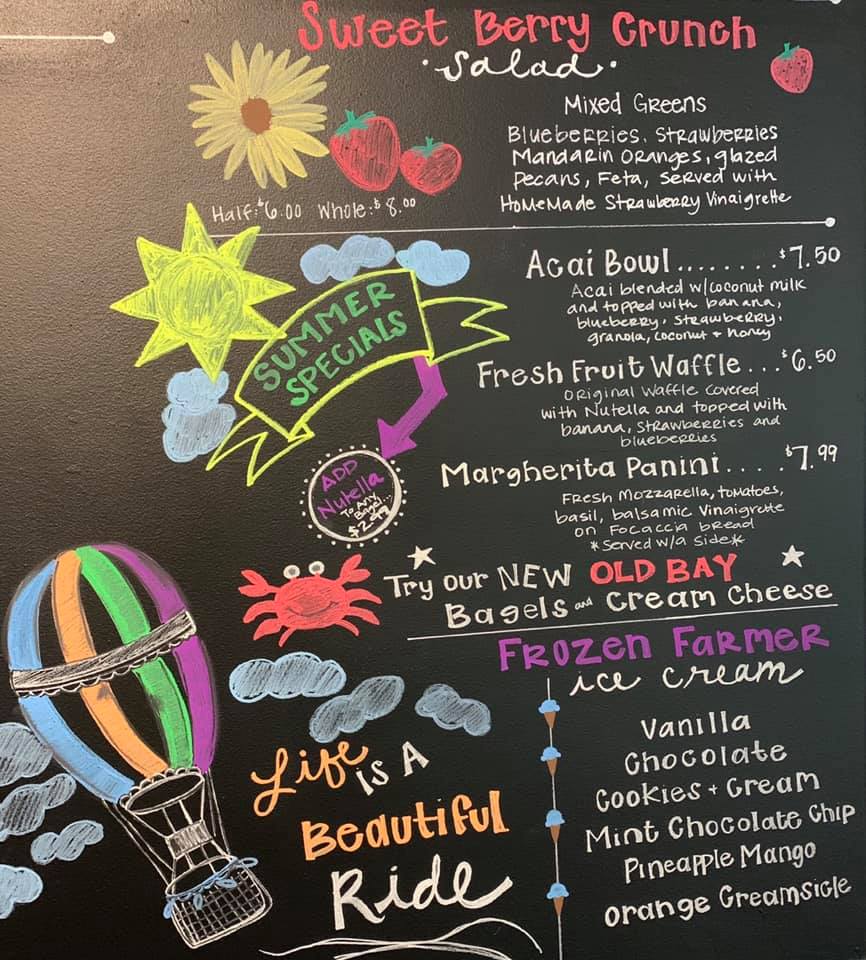 Sweet Berry Crunch
·Salad·
Mixed Greens
Blueberries, Strawberries
Mandarin Oranges, glazed
Pecans, Feta, Served with
HomeMade Strawberry Vinaigrette
Half: $6.00 Whole: $8.00
SUMMER
SPECIALS
ADD
Nutella
To Any
Bagel...
$2.99
Acai Bowl........$7.50
Acai blended w/coconut milk
and topped with banana,
blueberry, strawberry,
granola, coconut + honey
Fresh Fruit Waffle...$6.50
Original Waffle Covered
with Nutella and topped with
banana, strawberries and
blueberries
Margherita Panini....$7.99
Fresh Mozzarella, tomatoes,
basil, balsamic Vinaigrette
on Focaccia bread
*Served w/a side*
Try our NEW OLD BAY
Bagels and Cream Cheese
Frozen Farmer
ice cream
Vanilla
Chocolate
Cookies + Cream
Mint Chocolate Chip
Pineapple Mango
Orange Creamsicle
Life
is A
Beautiful
Ride